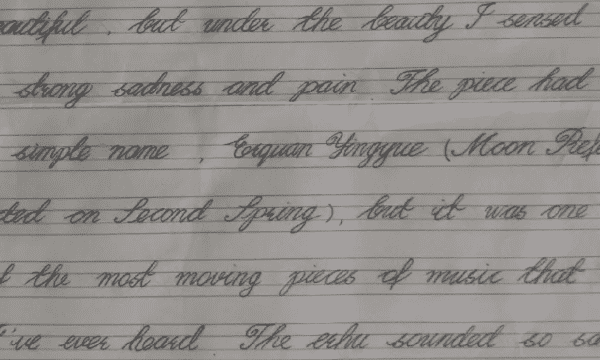 beautiful, but under the beauty I sensed
strong sadness and pain The piece had
simple name, Erquan Yingyue (Moon Refle
cted on Second Spring), but it was one
of the most moving pieces of music that
I've ever heard The erhu sounded so sa